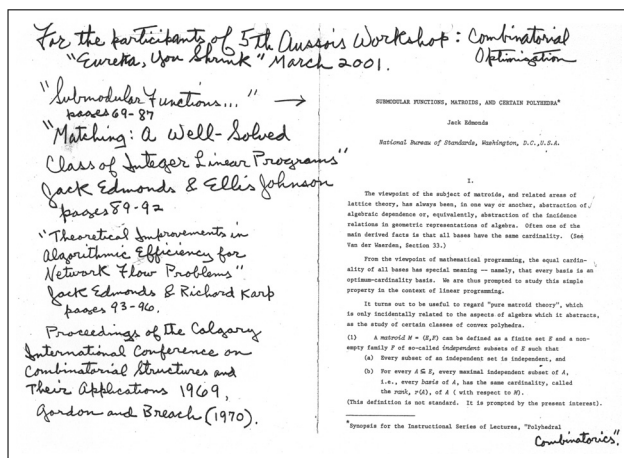 For the participants of 5th Aussois Workshop: Combinatorial
"Eureka, You Shrink" March 2001. Optimization
"Submodular Functions..." →
pages 69-87
"Matching: A Well-Solved
Class of Integer Linear Programs"
Jack Edmonds & Ellis Johnson
pages 89-92
"Theoretical Improvements in
Algorithmic Efficiency for
Network Flow Problems"
Jack Edmonds & Richard Karp
pages 93-96.
Proceedings of the Calgary
International Conference on
Combinatorial Structures and
Their Applications 1969,
Gordon and Breach (1970).
SUBMODULAR FUNCTIONS, MATROIDS, AND CERTAIN POLYHEDRA*
Jack Edmonds
National Bureau of Standards, Washington, D.C.,U.S.A.
I.
The viewpoint of the subject of matroids, and related areas of
lattice theory, has always been, in one way or another, abstraction of
algebraic dependence or, equivalently, abstraction of the incidence
relations in geometric representations of algebra. Often one of the
main derived facts is that all bases have the same cardinality. (See
Van der Waerden, Section 33.)
From the viewpoint of mathematical programming, the equal cardin-
ality of all bases has special meaning -- namely, that every basis is an
optimum-cardinality basis. We are thus prompted to study this simple
property in the context of linear programming.
It turns out to be useful to regard "pure matroid theory", which
is only incidentally related to the aspects of algebra which it abstracts,
as the study of certain classes of convex polyhedra.
(1) A matroid M = (E,F) can be defined as a finite set E and a non-
empty family F of so-called independent subsets of E such that
(a) Every subset of an independent set is independent, and
(b) For every A ⊆ E, every maximal independent subset of A,
i.e., every basis of A, has the same cardinality, called
the rank, r(A), of A ( with respect to M).
(This definition is not standard. It is prompted by the present interest).
*Synopsis for the Instructional Series of Lectures, "Polyhedral
Combinatorics".